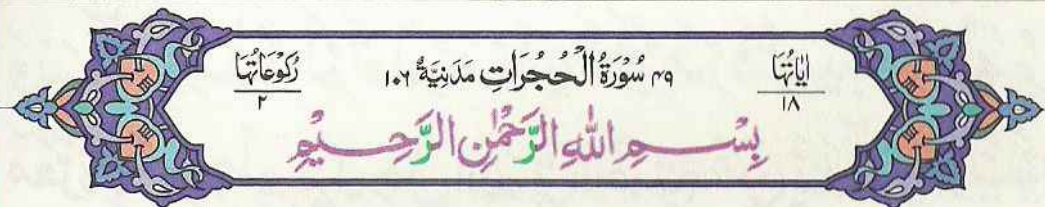 اٰيَاتُهَا ١٨
٤٩ سُوْرَةُ الْحُجُرَاتِ مَدَنِيَّةٌ ١٠٦
رُكُوْعَاتُهَا ٢
بِسْمِ اللّٰهِ الرَّحْمٰنِ الرَّحِيْمِ